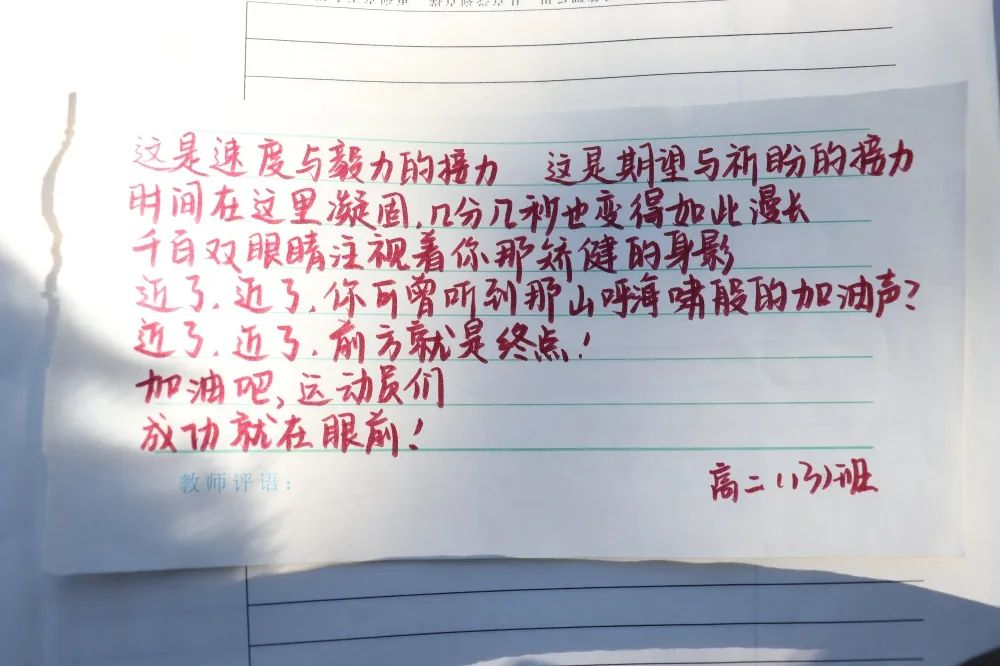 这是速度与毅力的接力 这是期望与祈盼的接力
时间在这里凝固,几分几秒也变得如此漫长
千百双眼睛注视着你那矫健的身影
近了,近了,你可曾听到那山呼海啸般的加油声?
近了,近了,前方就是终点!
加油吧,运动员们
成功就在眼前!
教师评语:
高二(13)班